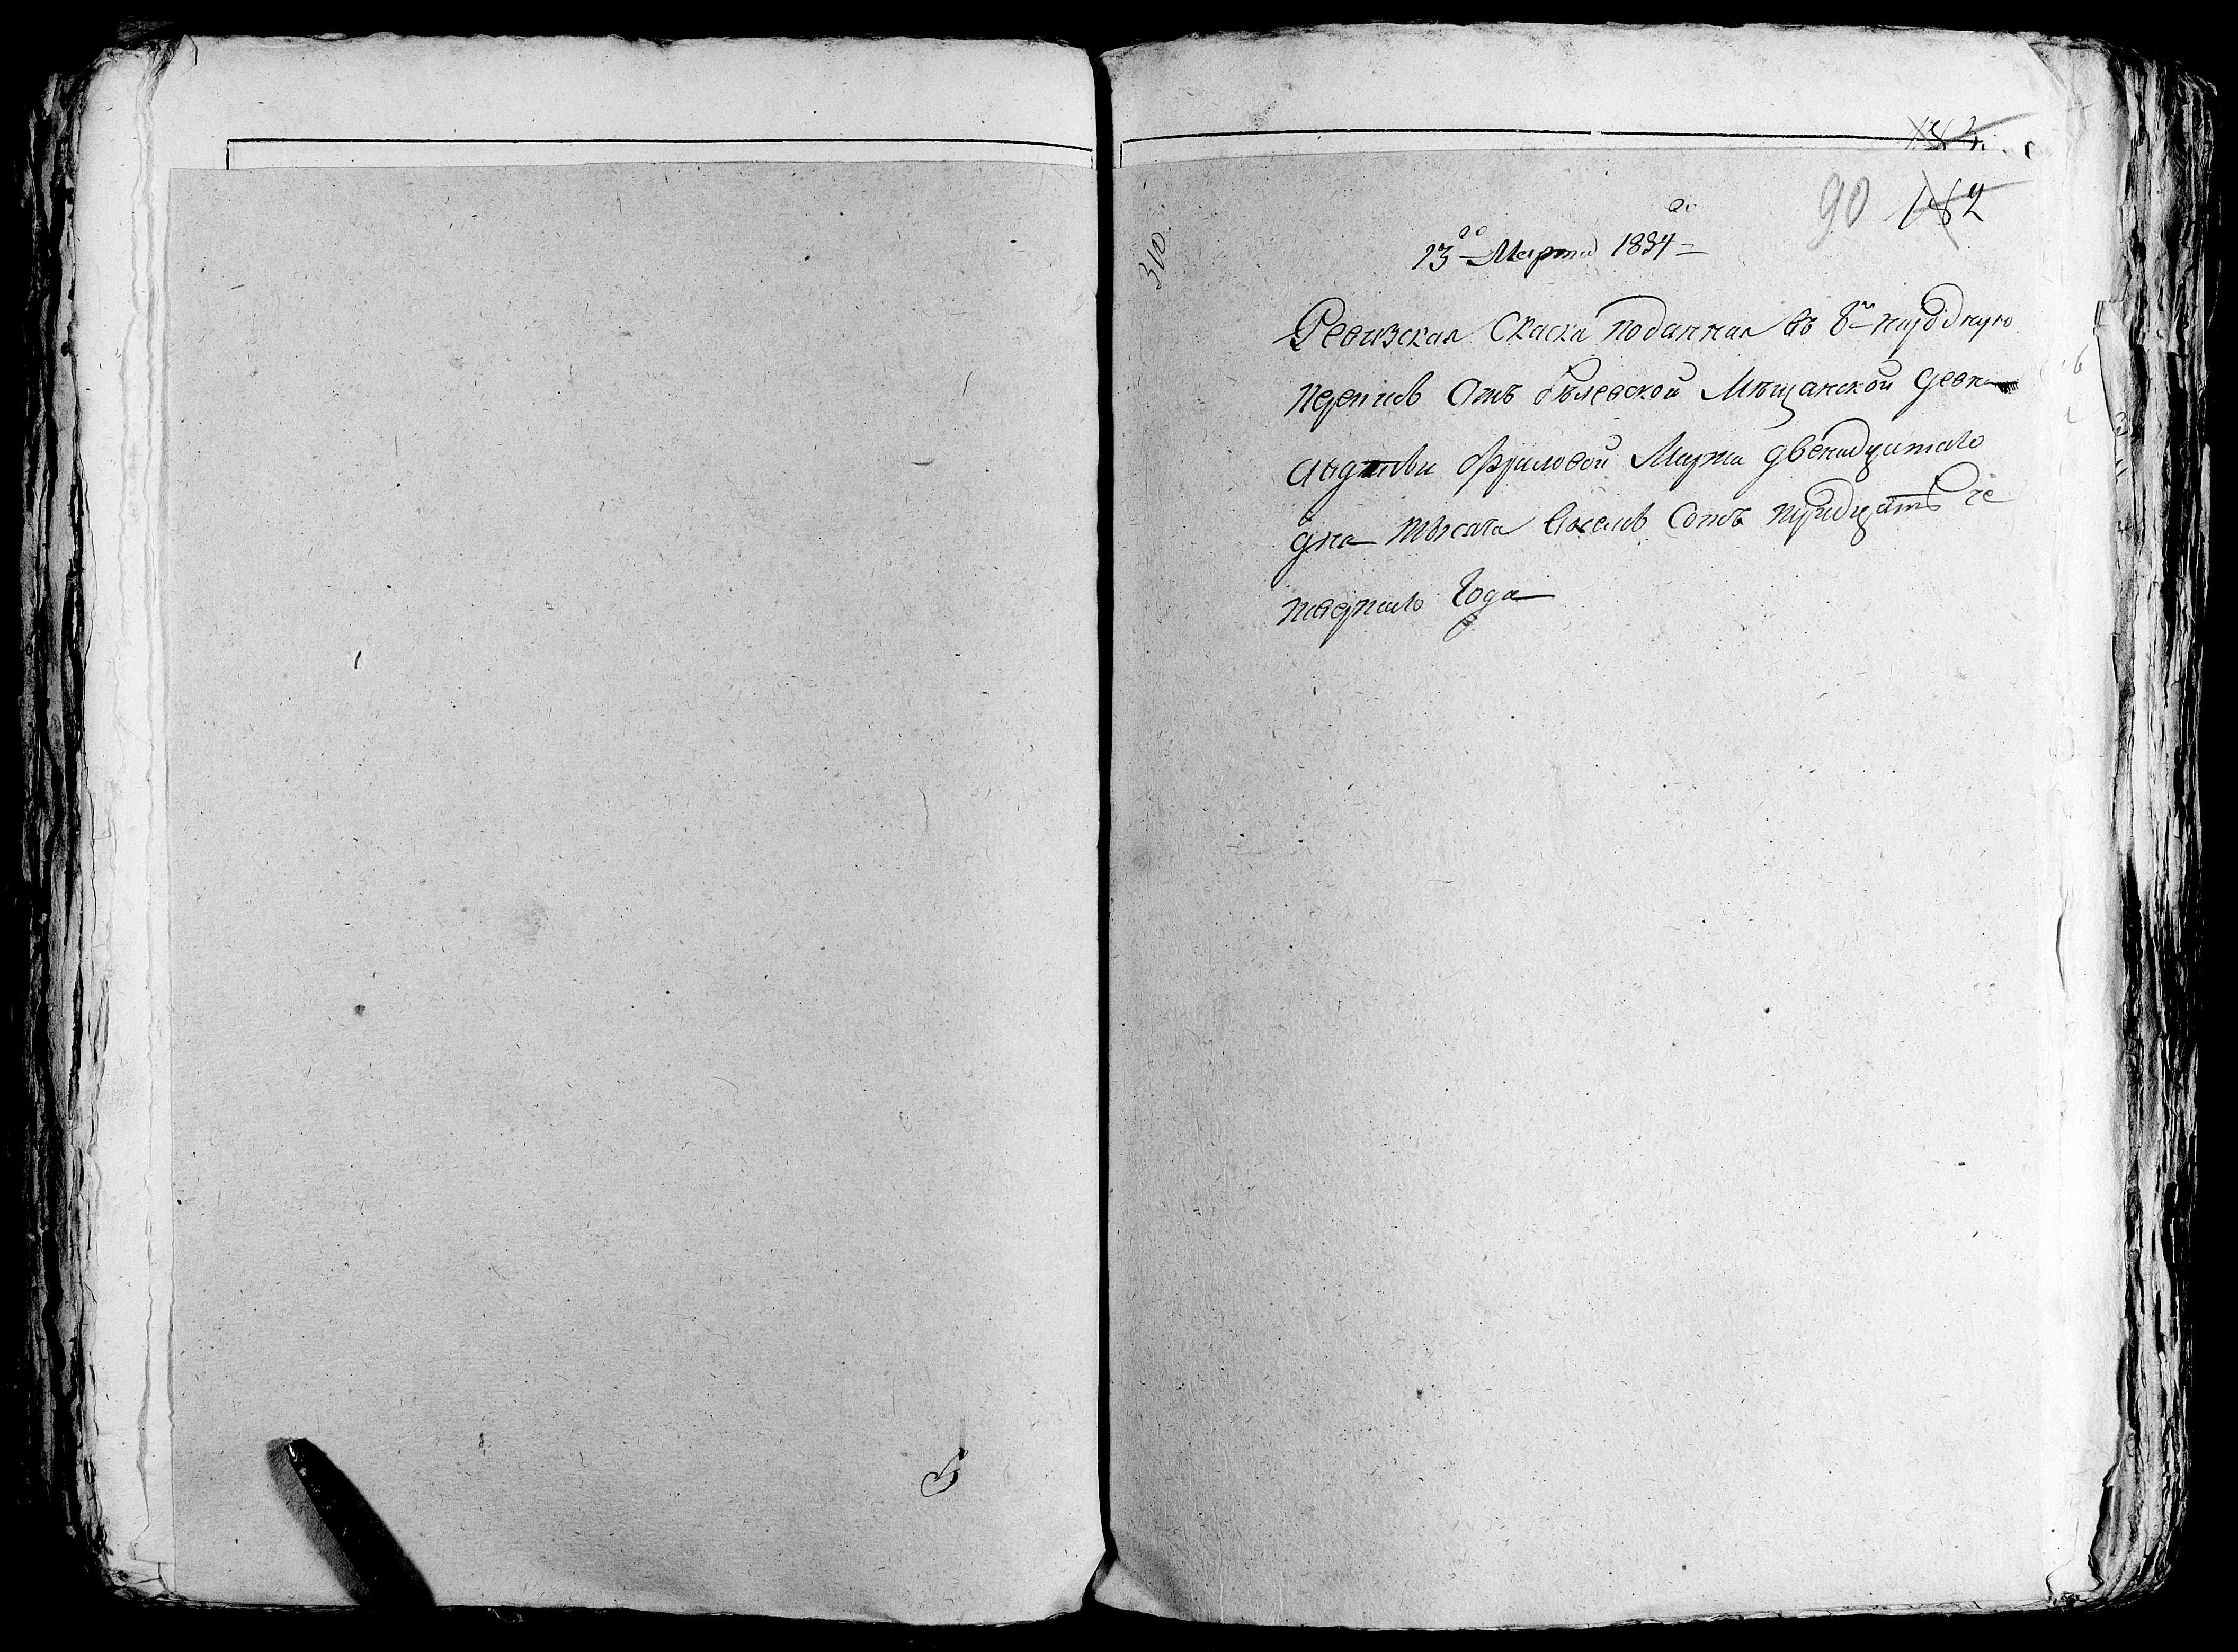 182
90
310.
13го Марта 1834го
Ревизская Скаска поданная въ 8ю народную
перепись Отъ белевской Мъщанской девки
Авдотьи Фроловой Марта двенадцатаго
дня тысяча Восемь Сотъ тридцать че
твертаго Года